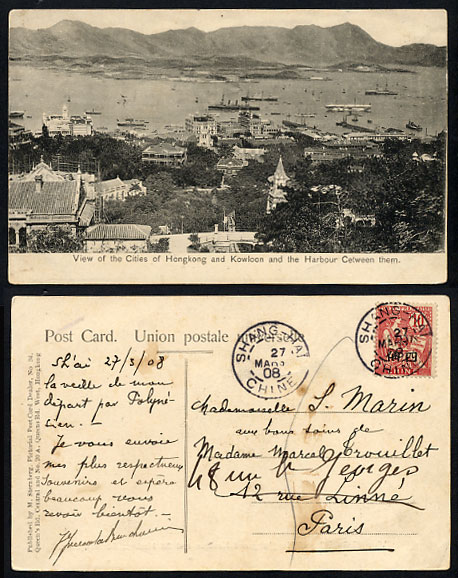 View of the Cities of Hongkong and Kowloon and the Harbour Cetween them.
Post Card. Union postale
Published by M. Sternberg, Pictorial Post Card Dealer, No 34,
Queen's Rd. Central and No. 20 A, Queens Rd. West, Hongkong
SHANG-HAI
27
MARS
08
CHINE
SHANG-HAI
27
MARS
08
CHINE
10
Sh'ai 27/3/08
la veille de mon
départ par Polyné-
sien. —
Je vous envoie
mes plus respectueux
souvenirs et espère
beaucoup vous
revoir bientôt. —
Mademoiselle S. Marin
aux bons soins de
Madame Marcel Trouillet
18 rue St Georges
42 rue Linné
Paris